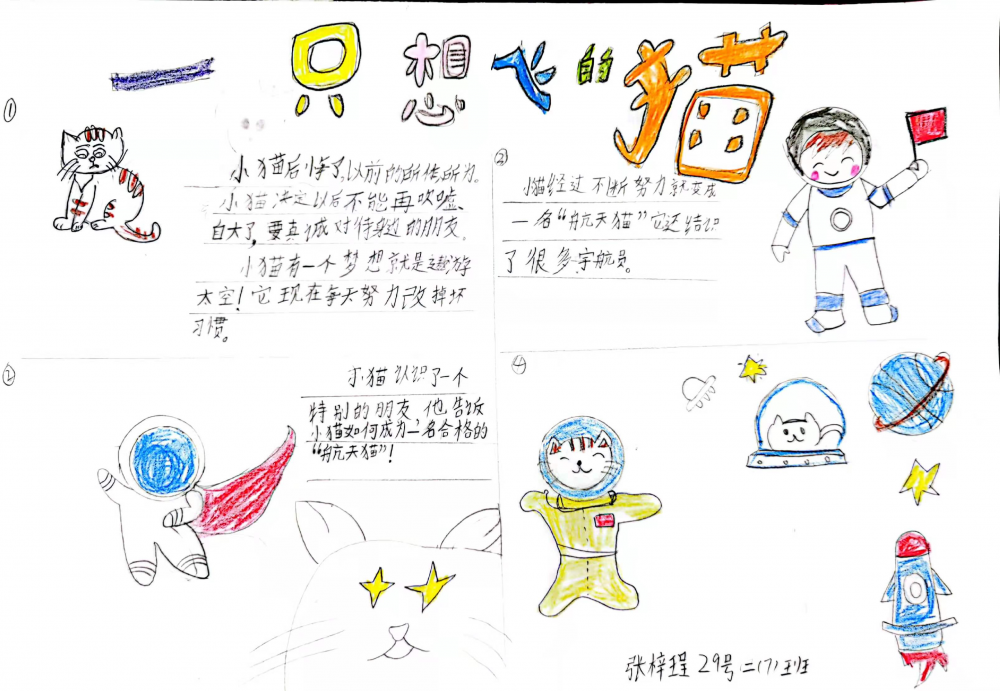 一只想飞的猫
①
小猫后悔了以前的所作所为。
小猫决定以后不能再吹嘘、
自大了,要真诚对待身边的朋友。
小猫有一个梦想就是遨游
太空!它现在每天努力改掉坏
习惯。
②
小猫认识了一个
特别的朋友,他告诉
小猫如何成为一名合格的
“航天猫”!
③
小猫经过不断努力就变成
一名“航天猫”它还结识
了很多宇航员。
④
张梓珵 29号 二(7)班